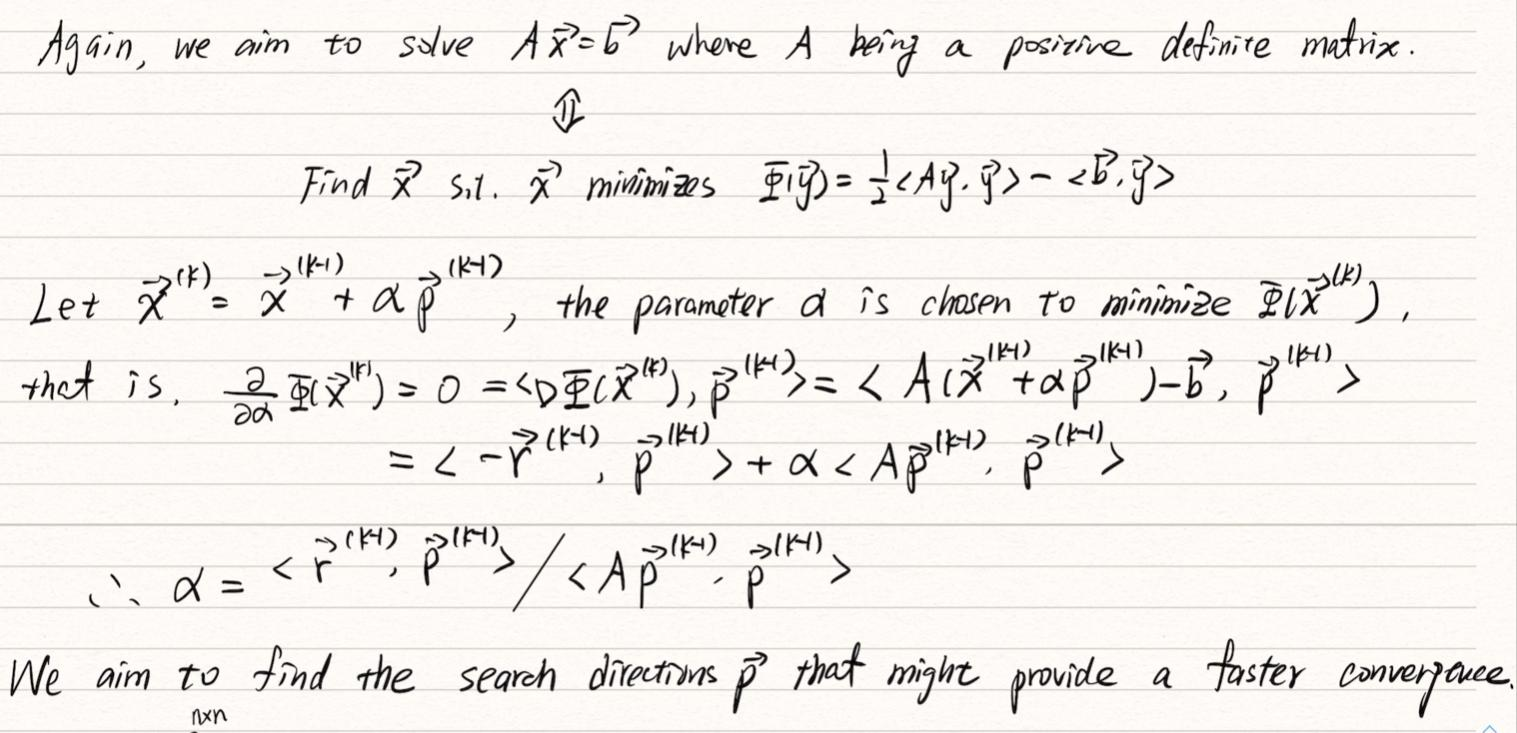 Again, we aim to solve Ax⃗=b⃗ where A being a positive definite matrix.
⇕
Find x⃗ s.t. x⃗ minimizes Φ(y⃗)= 1/2<Ay⃗, y⃗> - <b⃗, y⃗>
Let x⃗^(k) = x⃗^(k-1) + αp⃗^(k-1), the parameter α is chosen to minimize Φ(x⃗^(k)),
that is, ∂/∂α Φ(x⃗^(k)) = 0 = <DΦ(x⃗^(k)), p⃗^(k-1)> = < A(x⃗^(k-1) + αp⃗^(k-1)) - b⃗, p⃗^(k-1) >
= < -r⃗^(k-1), p⃗^(k-1) > + α < Ap⃗^(k-1), p⃗^(k-1) >
∴ α = < r⃗^(k-1), p⃗^(k-1) > / < Ap⃗^(k-1), p⃗^(k-1) >
We aim to find the search directions p⃗ that might provide a faster convergence.
n×n